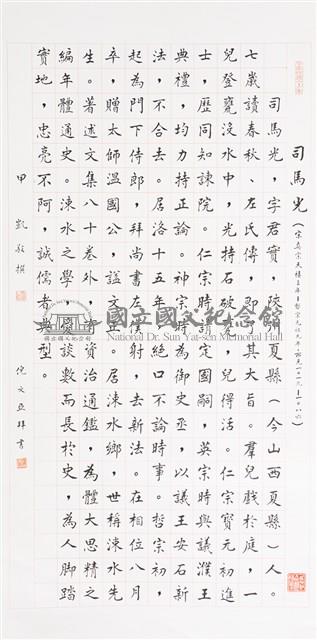 司馬光（宋真宗天禧三年至哲宗元祐元年　一〇一九—一〇八六）
司馬光，字君實，陝　夏縣（今山西夏縣）人。
七歲讀春秋、左氏傳，即　其大旨。羣兒戲於庭，一
兒登甕沒水中，光持石破甕，兒得活。仁宗寶元初進
士，歷同知諫院。仁宗時定國嗣，英宗時與議濮王
典禮，均力持正論。神宗時為御史　丞，以議王安石新
法，不合去。居洛十五年，絕口不論時事。哲宗初，
起為門下侍郎，拜尚書左僕射，　去新法。在相位八月
卒，贈太師溫國公，謚文正。居涑水鄉，世稱涑水先
生。著述文集八十卷外，有資治通鑑，為體大思精之
編年體通史。涑水之學，　於數而長於史，為人脚踏
實地，忠亮不阿，誠儒者典型。
甲凱敬撰　倪文亞拜書
國立國父紀念館
National Dr. Sun Yat-sen Memorial Hall